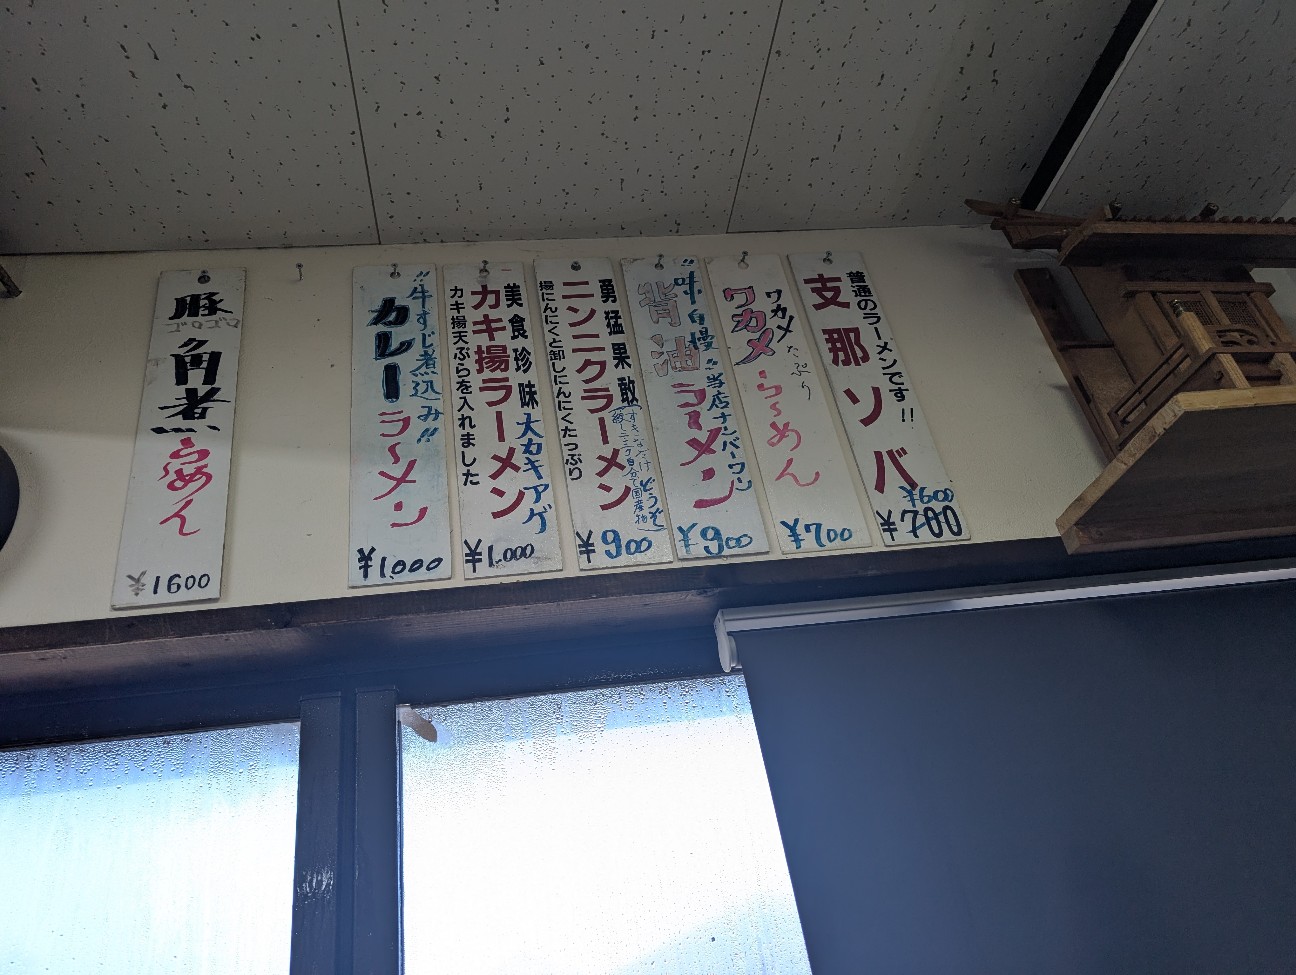 普通のラーメンです!!
支那ソバ
¥600
¥700
ワカメたっぷり
ワカメらーめん
¥700
"味自慢"当店ナンバーワン
背油ラーメン
¥900
勇猛果敢
ニンニクラーメン
揚にんにくと卸しにんにくたっぷり
どうぞ
¥900
美食珍味
大カキアゲ
カキ揚ラーメン
カキ揚天ぷらを入れました
¥1.000
"牛すじ煮込み"
カレーラーメン
¥1.000
豚
ゴロゴロ
角煮
らぁめん
¥1600